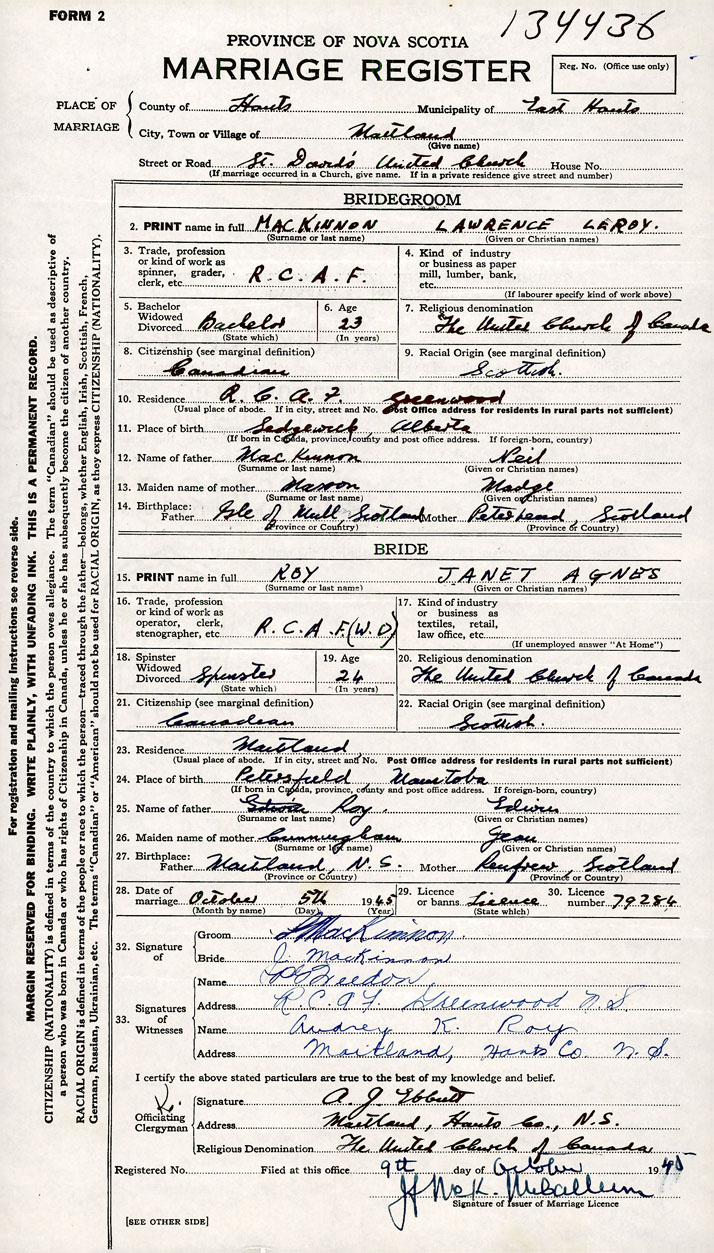 FORM 2
134436
PROVINCE OF NOVA SCOTIA
MARRIAGE REGISTER
Reg. No. (Office use only)
PLACE OF MARRIAGE
County of Hants Municipality of East Hants
City, Town or Village of Maitland
(Give name)
Street or Road St. David's United Church House No.
(If marriage occurred in a Church, give name. If in a private residence give street and number)
BRIDEGROOM
2. PRINT name in full MACKINNON LAWRENCE LEROY.
(Surname or last name) (Given or Christian names)
3. Trade, profession or kind of work as spinner, grader, clerk, etc. R.C.A.F.
4. Kind of industry or business as paper mill, lumber, bank, etc.
(If labourer specify kind of work above)
5. Bachelor Widowed Divorced Bachelor
(State which)
6. Age 23
(In years)
7. Religious denomination
The United Church of Canada
8. Citizenship (see marginal definition)
Canadian
9. Racial Origin (see marginal definition)
Scottish.
10. Residence R.C.A.F. Greenwood
(Usual place of abode. If in city, street and No. Post Office address for residents in rural parts not sufficient)
11. Place of birth Sedgewick, Alberta
(If born in Canada, province, county and post office address. If foreign-born, country)
12. Name of father MacKinnon Neil
(Surname or last name) (Given or Christian names)
13. Maiden name of mother Madge
(Surname or last name) (Given or Christian names)
14. Birthplace: Father Isle of Mull, Scotland Mother Peterhead, Scotland
(Province or Country) (Province or Country)
BRIDE
15. PRINT name in full ROY JANET AGNES
(Surname or last name) (Given or Christian names)
16. Trade, profession or kind of work as operator, clerk, stenographer, etc. R.C.A.F. (W.D)
17. Kind of industry or business as textiles, retail, law office, etc.
(If unemployed answer "At Home")
18. Spinster Widowed Divorced Spinster
(State which)
19. Age 24
(In years)
20. Religious denomination
The United Church of Canada
21. Citizenship (see marginal definition)
Canadian
22. Racial Origin (see marginal definition)
Scottish.
23. Residence Maitland
(Usual place of abode. If in city, street and No. Post Office address for residents in rural parts not sufficient)
24. Place of birth Petersfield, Manitoba
(If born in Canada, province, county and post office address. If foreign-born, country)
25. Name of father Edwin Roy. Edwin
(Surname or last name) (Given or Christian names)
26. Maiden name of mother Cunningham Jean
(Surname or last name) (Given or Christian names)
27. Birthplace: Father Maitland, N.S. Mother Renfrew, Scotland
(Province or Country) (Province or Country)
28. Date of marriage October 5th 1945
(Month by name) (Day) (Year)
29. Licence or banns Licence
(State which)
30. Licence number 79284
32. Signature of
Groom L MacKinnon.
Bride J. MacKinnon
33. Signatures of Witnesses
Name
Address R.C.A.F. Greenwood N.S.
Name Audrey K. Roy
Address Maitland, Hants Co. N.S.
I certify the above stated particulars are true to the best of my knowledge and belief.
Officiating Clergyman
Signature A. J. Ebbutt
Address Maitland, Hants Co., N.S.
Religious Denomination The United Church of Canada
Registered No. Filed at this office 9th day of October 1945
McCallum
Signature of Issuer of Marriage Licence
[SEE OTHER SIDE]
For registration and mailing instructions see reverse side.
MARGIN RESERVED FOR BINDING. WRITE PLAINLY, WITH UNFADING INK. THIS IS A PERMANENT RECORD.
CITIZENSHIP (NATIONALITY) is defined in terms of the country to which the person owes allegiance. The term "Canadian" should be used as descriptive of
a person who was born in Canada or who has rights of Citizenship in Canada, unless he or she has subsequently become the citizen of another country.
RACIAL ORIGIN is defined in terms of the people or race to which the person—traced through the father—belongs, whether English, Irish, Scottish, French,
German, Russian, Ukrainian, etc. The terms "Canadian" or "American" should not be used for RACIAL ORIGIN, as they express CITIZENSHIP (NATIONALITY).